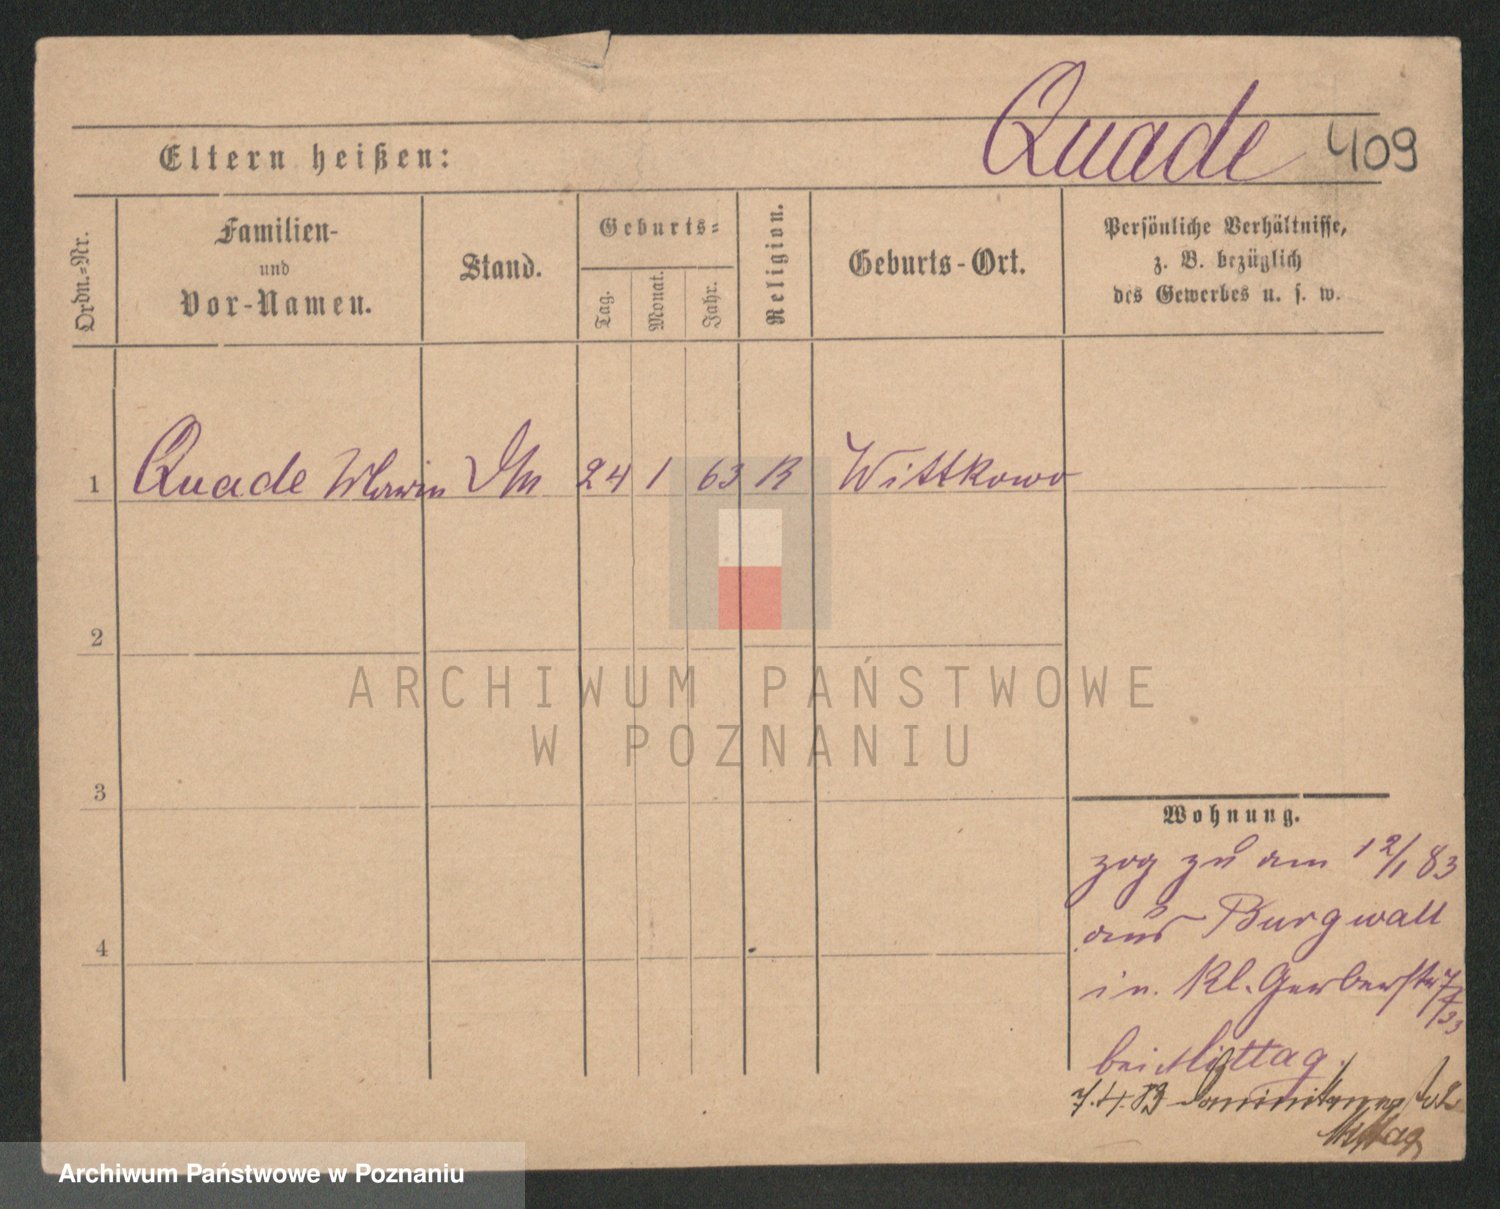 Quade 409
Eltern heißen:
Ordn.-Nr.
Familien-
und
Vor-Namen.
Stand.
Geburts-
Tag.
Monat.
Jahr.
Religion.
Geburts-Ort.
Persönliche Verhältnisse,
z. B. bezüglich
des Gewerbes u. s. w.
1 Quade 24 1 63 K Wittkowo
2
3
4
ARCHIWUM PAŃSTWOWE
W POZNANIU
Wohnung.
zog zu am 12/1 83
aus Burgwall
in Kl. Gerberstr 7
bei Mittag.
7.4.83
Mittag
Archiwum Państwowe w Poznaniu